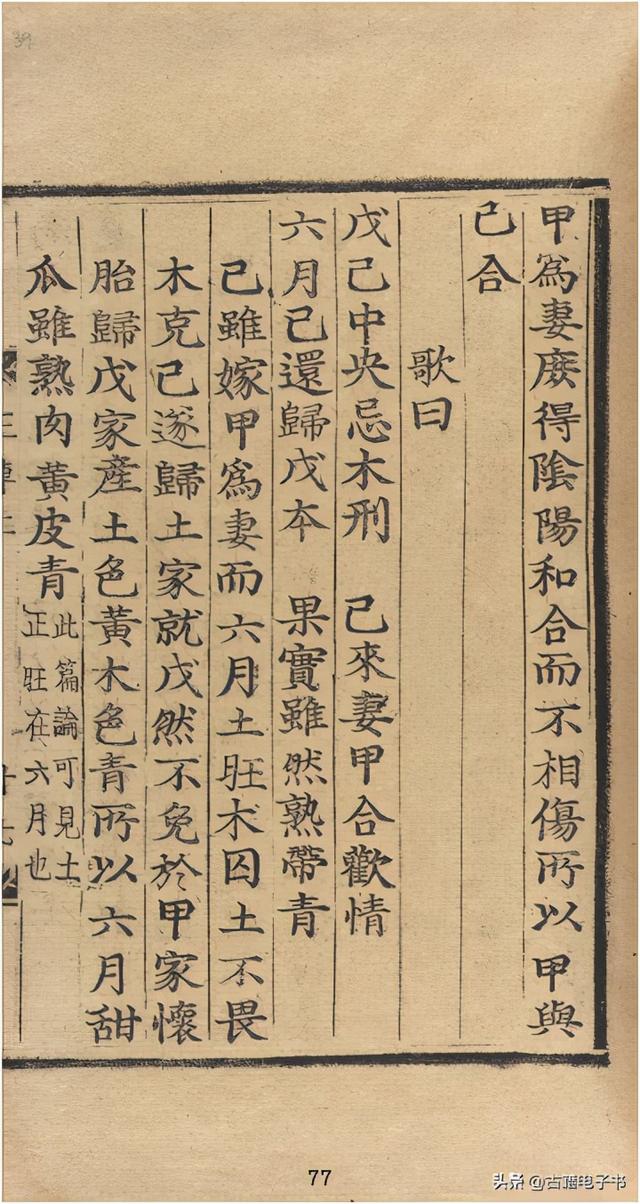 甲為妻庶得陰陽和合而不相傷所以甲與
己合
歌曰
戊己中央忌木刑 己來妻甲合歡情
六月己還歸戊本 果實雖然熟帶青
己雖嫁甲為妻而六月土旺木囚土不畏
木克己遂歸土家就戊然不免於甲家懷
胎歸戊家產土色黃木色青所以六月甜
瓜雖熟肉黃皮青此篇論可見土
正旺在六月也
39
77
头条 @古籍电子书